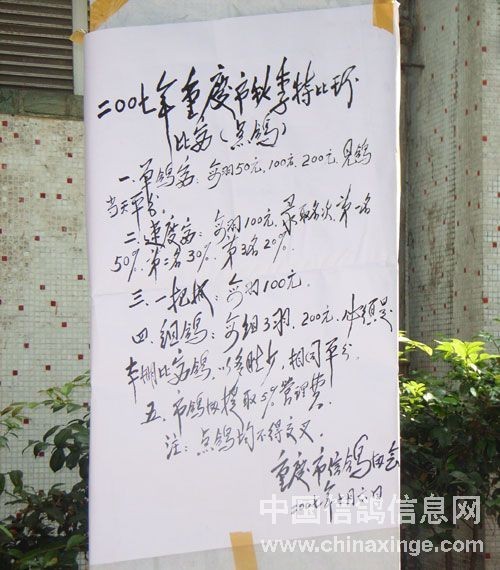 二00七年重庆市秋季特比环
比赛（点鸽）
一、单鸽赛：每羽50元、100元、200元、见鸽
当天平分。
二、速度赛：每羽100元、录取名次、第一名
50%、第二名30%、第3名20%。
三、一把抓：每羽100元。
四、组鸽：每组3羽、200元、必须是
本棚比赛鸽、以多胜少、相同平分。
五、市鸽协提取5%管理费。
注：点鸽均不得交叉。
重庆市信鸽协会
中国信鸽信息网
www.chinaxinge.com